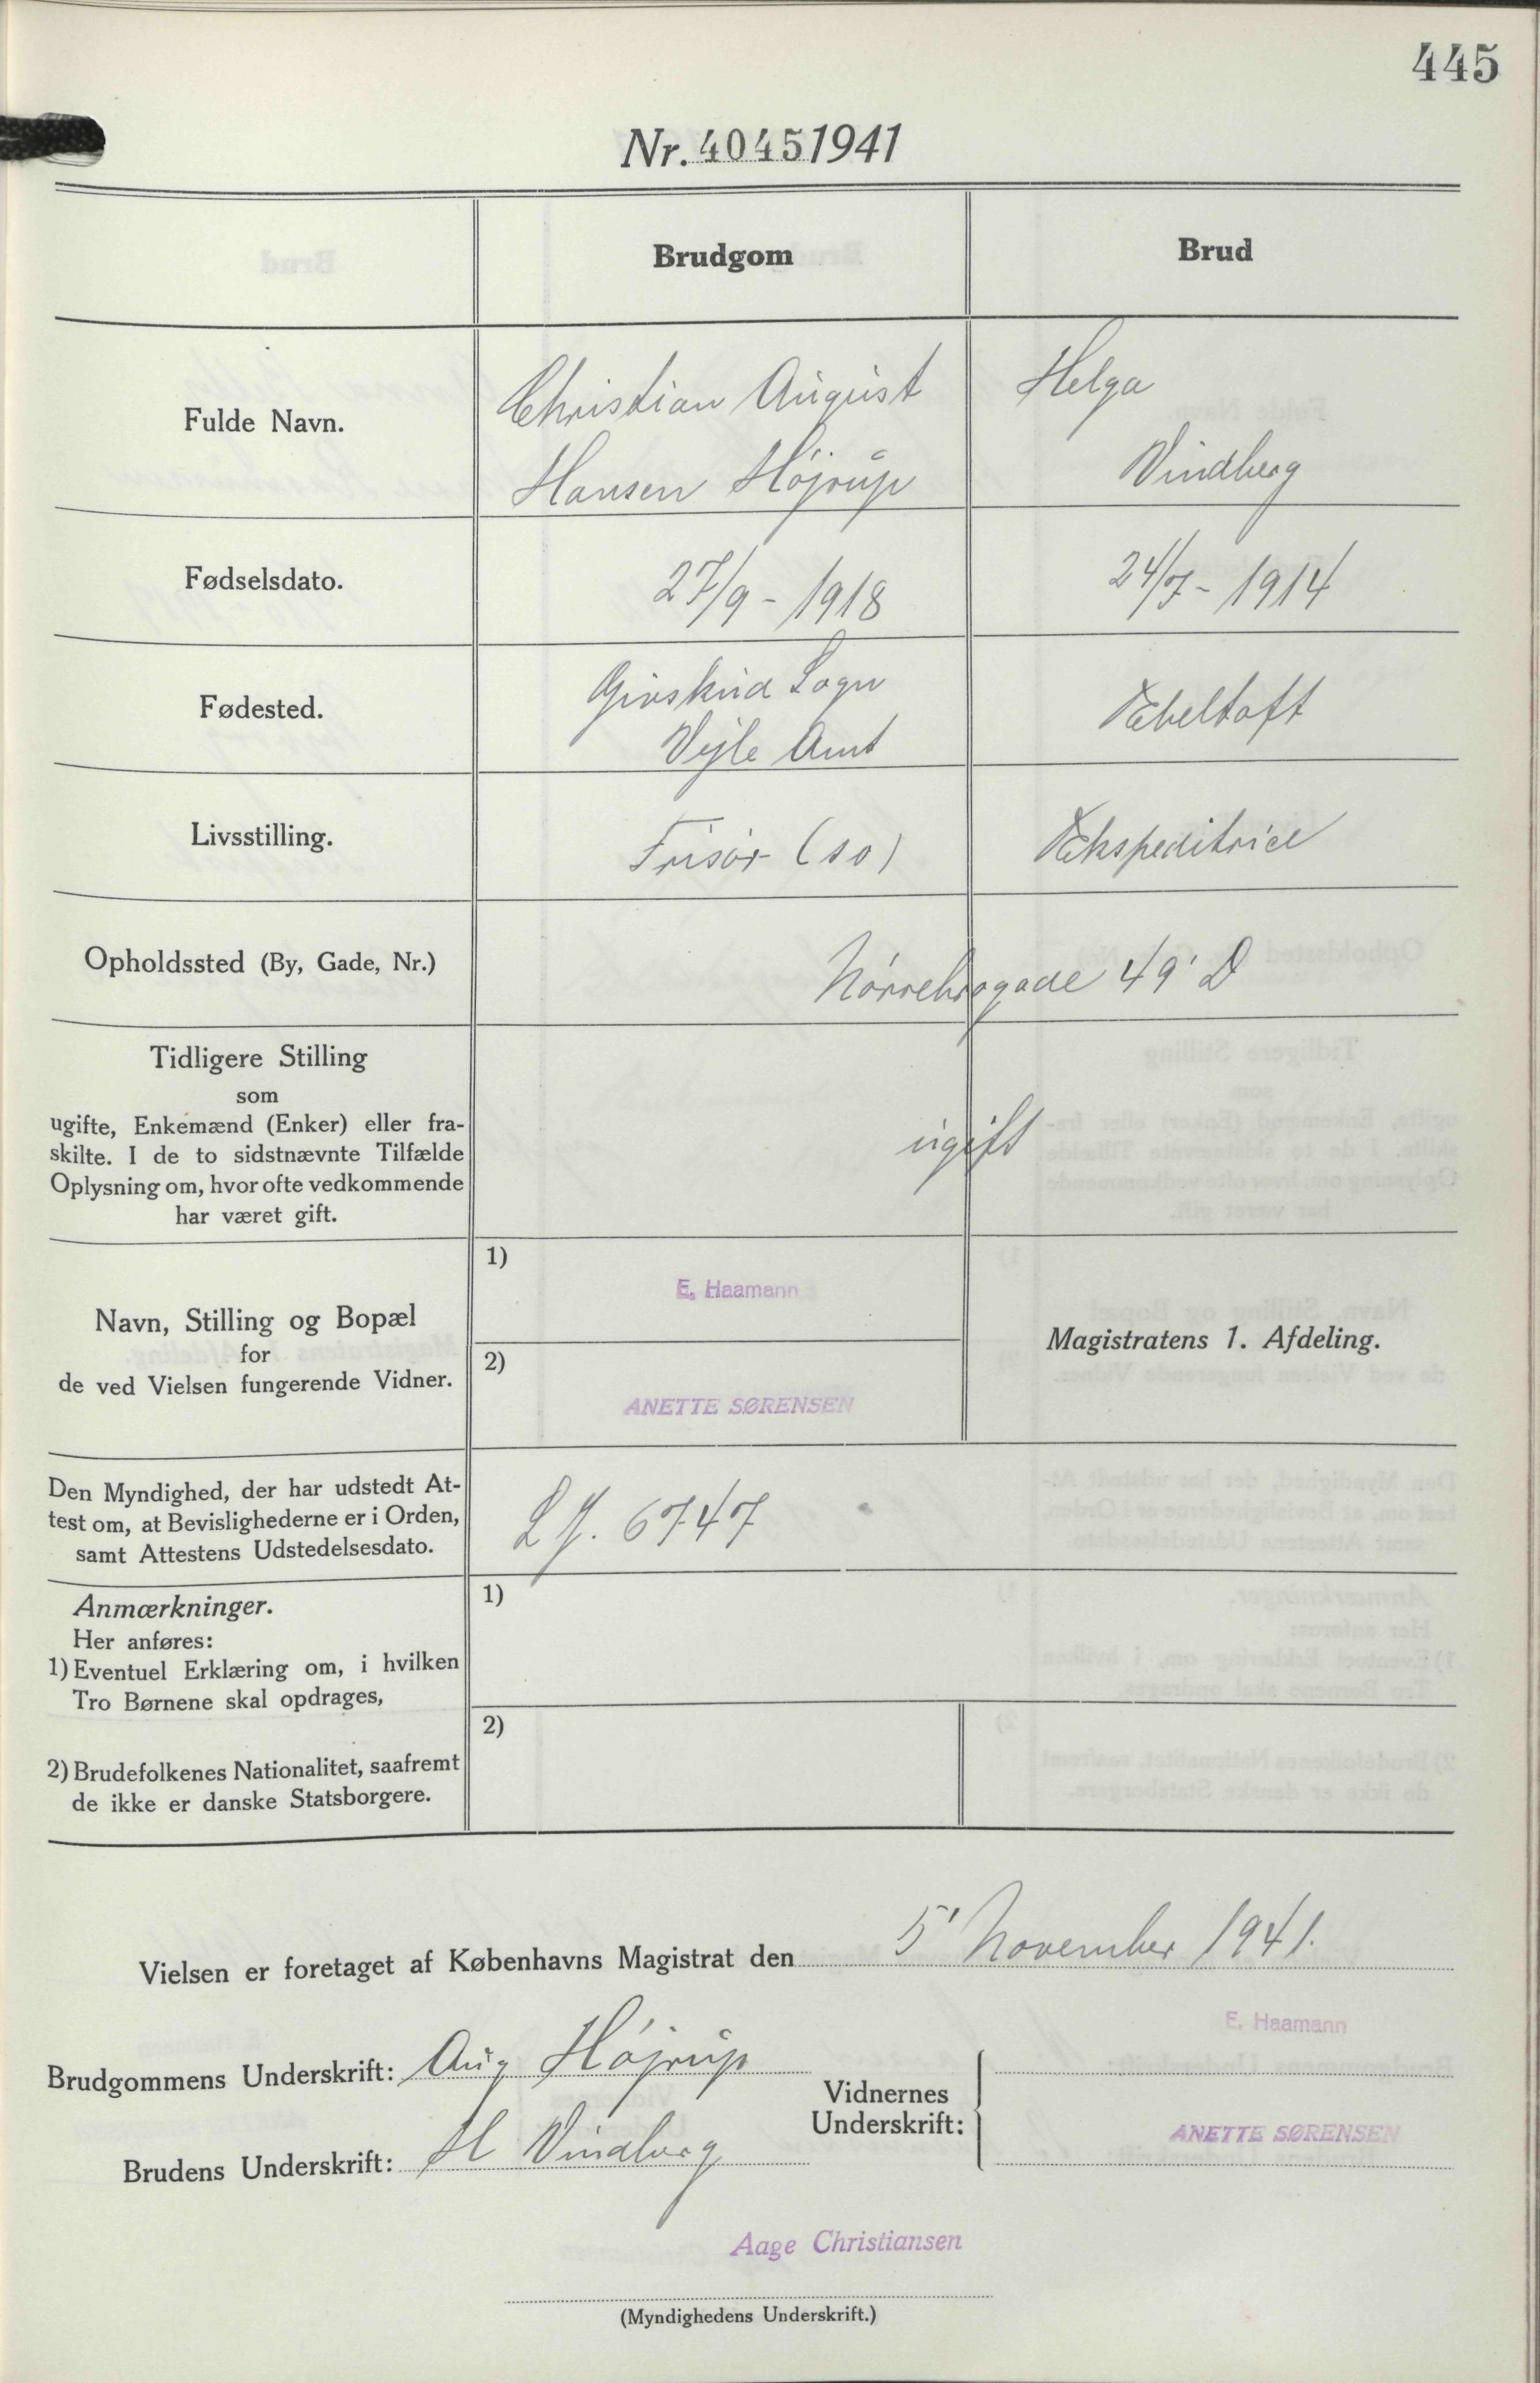 445
Nr. 4045 1941
Brudgom
Brud
Fulde Navn.
Christian August
Hansen Højrup
Helga
Vindberg
Fødselsdato.
27/9 - 1918
24/7 - 1914
Fødested.
Givskud Sogn
Vejle Amt
Ebeltoft
Livsstilling.
Frisør (so)
Ekspeditrice
Opholdssted (By, Gade, Nr.)
Nørrebrogade 49' D
Tidligere Stilling
som
ugifte, Enkemænd (Enker) eller fra-
skilte. I de to sidstnævnte Tilfælde
Oplysning om, hvor ofte vedkommende
har været gift.
ugift
Navn, Stilling og Bopæl
for
de ved Vielsen fungerende Vidner.
1)
E. Haamann
2)
ANETTE SØRENSEN
Magistratens 1. Afdeling.
Den Myndighed, der har udstedt At-
test om, at Bevislighederne er i Orden,
samt Attestens Udstedelsesdato.
6747
Anmærkninger.
Her anføres:
1) Eventuel Erklæring om, i hvilken
Tro Børnene skal opdrages,
2) Brudefolkenes Nationalitet, saafremt
de ikke er danske Statsborgere.
1)
2)
Vielsen er foretaget af Københavns Magistrat den 5' November 1941.
Brudgommens Underskrift: Aug Højrup
Brudens Underskrift: H Vindberg
Vidnernes
Underskrift:
E. Haamann
ANETTE SØRENSEN
Aage Christiansen
(Myndighedens Underskrift.)